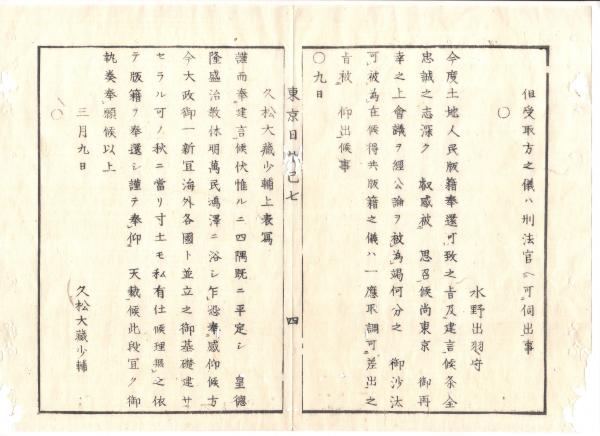 但受取方之儀ハ刑法官ヘ可伺出事
〇
水野出羽守
今度土地人民版籍奉還可致之旨及建言候条全
忠誠之志深ク 叡感被 思召候尚東京 御再
幸之上會議ヲ経公論ヲ被為竭何分之 御沙汰
可被為在候得共版籍之儀ハ一應取調可差出之
旨被 仰出候事
〇九日
東京日 己七
四
久松大藏少輔上表寫
謹而奉建言候伏惟ルニ四隅既ニ平定シ 皇徳
隆盛治教休明萬民鴻澤ニ浴シ乍恐奉感仰候方
今大政御一新宜海外各國ト並立之御基礎建サ
セラル可ノ秋ニ當リ寸土モ私有仕候理無之依
テ版籍ヲ奉還シ謹テ奉仰 天裁候此段宜ク御
執奏奉願候以上
三月九日
久松大藏少輔
〇